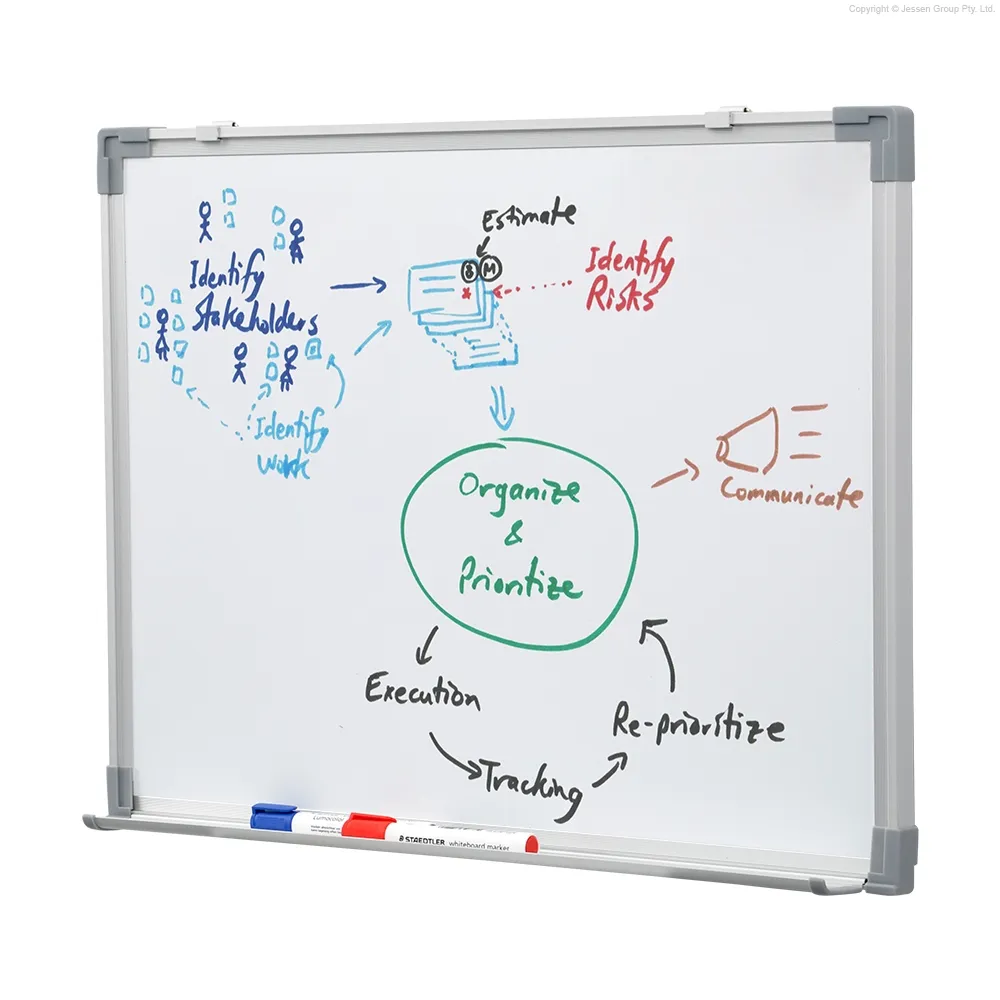 Copyright © Jessen Group Pty. Ltd.
Estimate
$ M
Identify
Stakeholders
Identify
Risks
Identify
Work
Communicate
Organize
&
Prioritize
Execution
Re-prioritize
Tracking
Lumocolor
STAEDTLER whiteboard marker